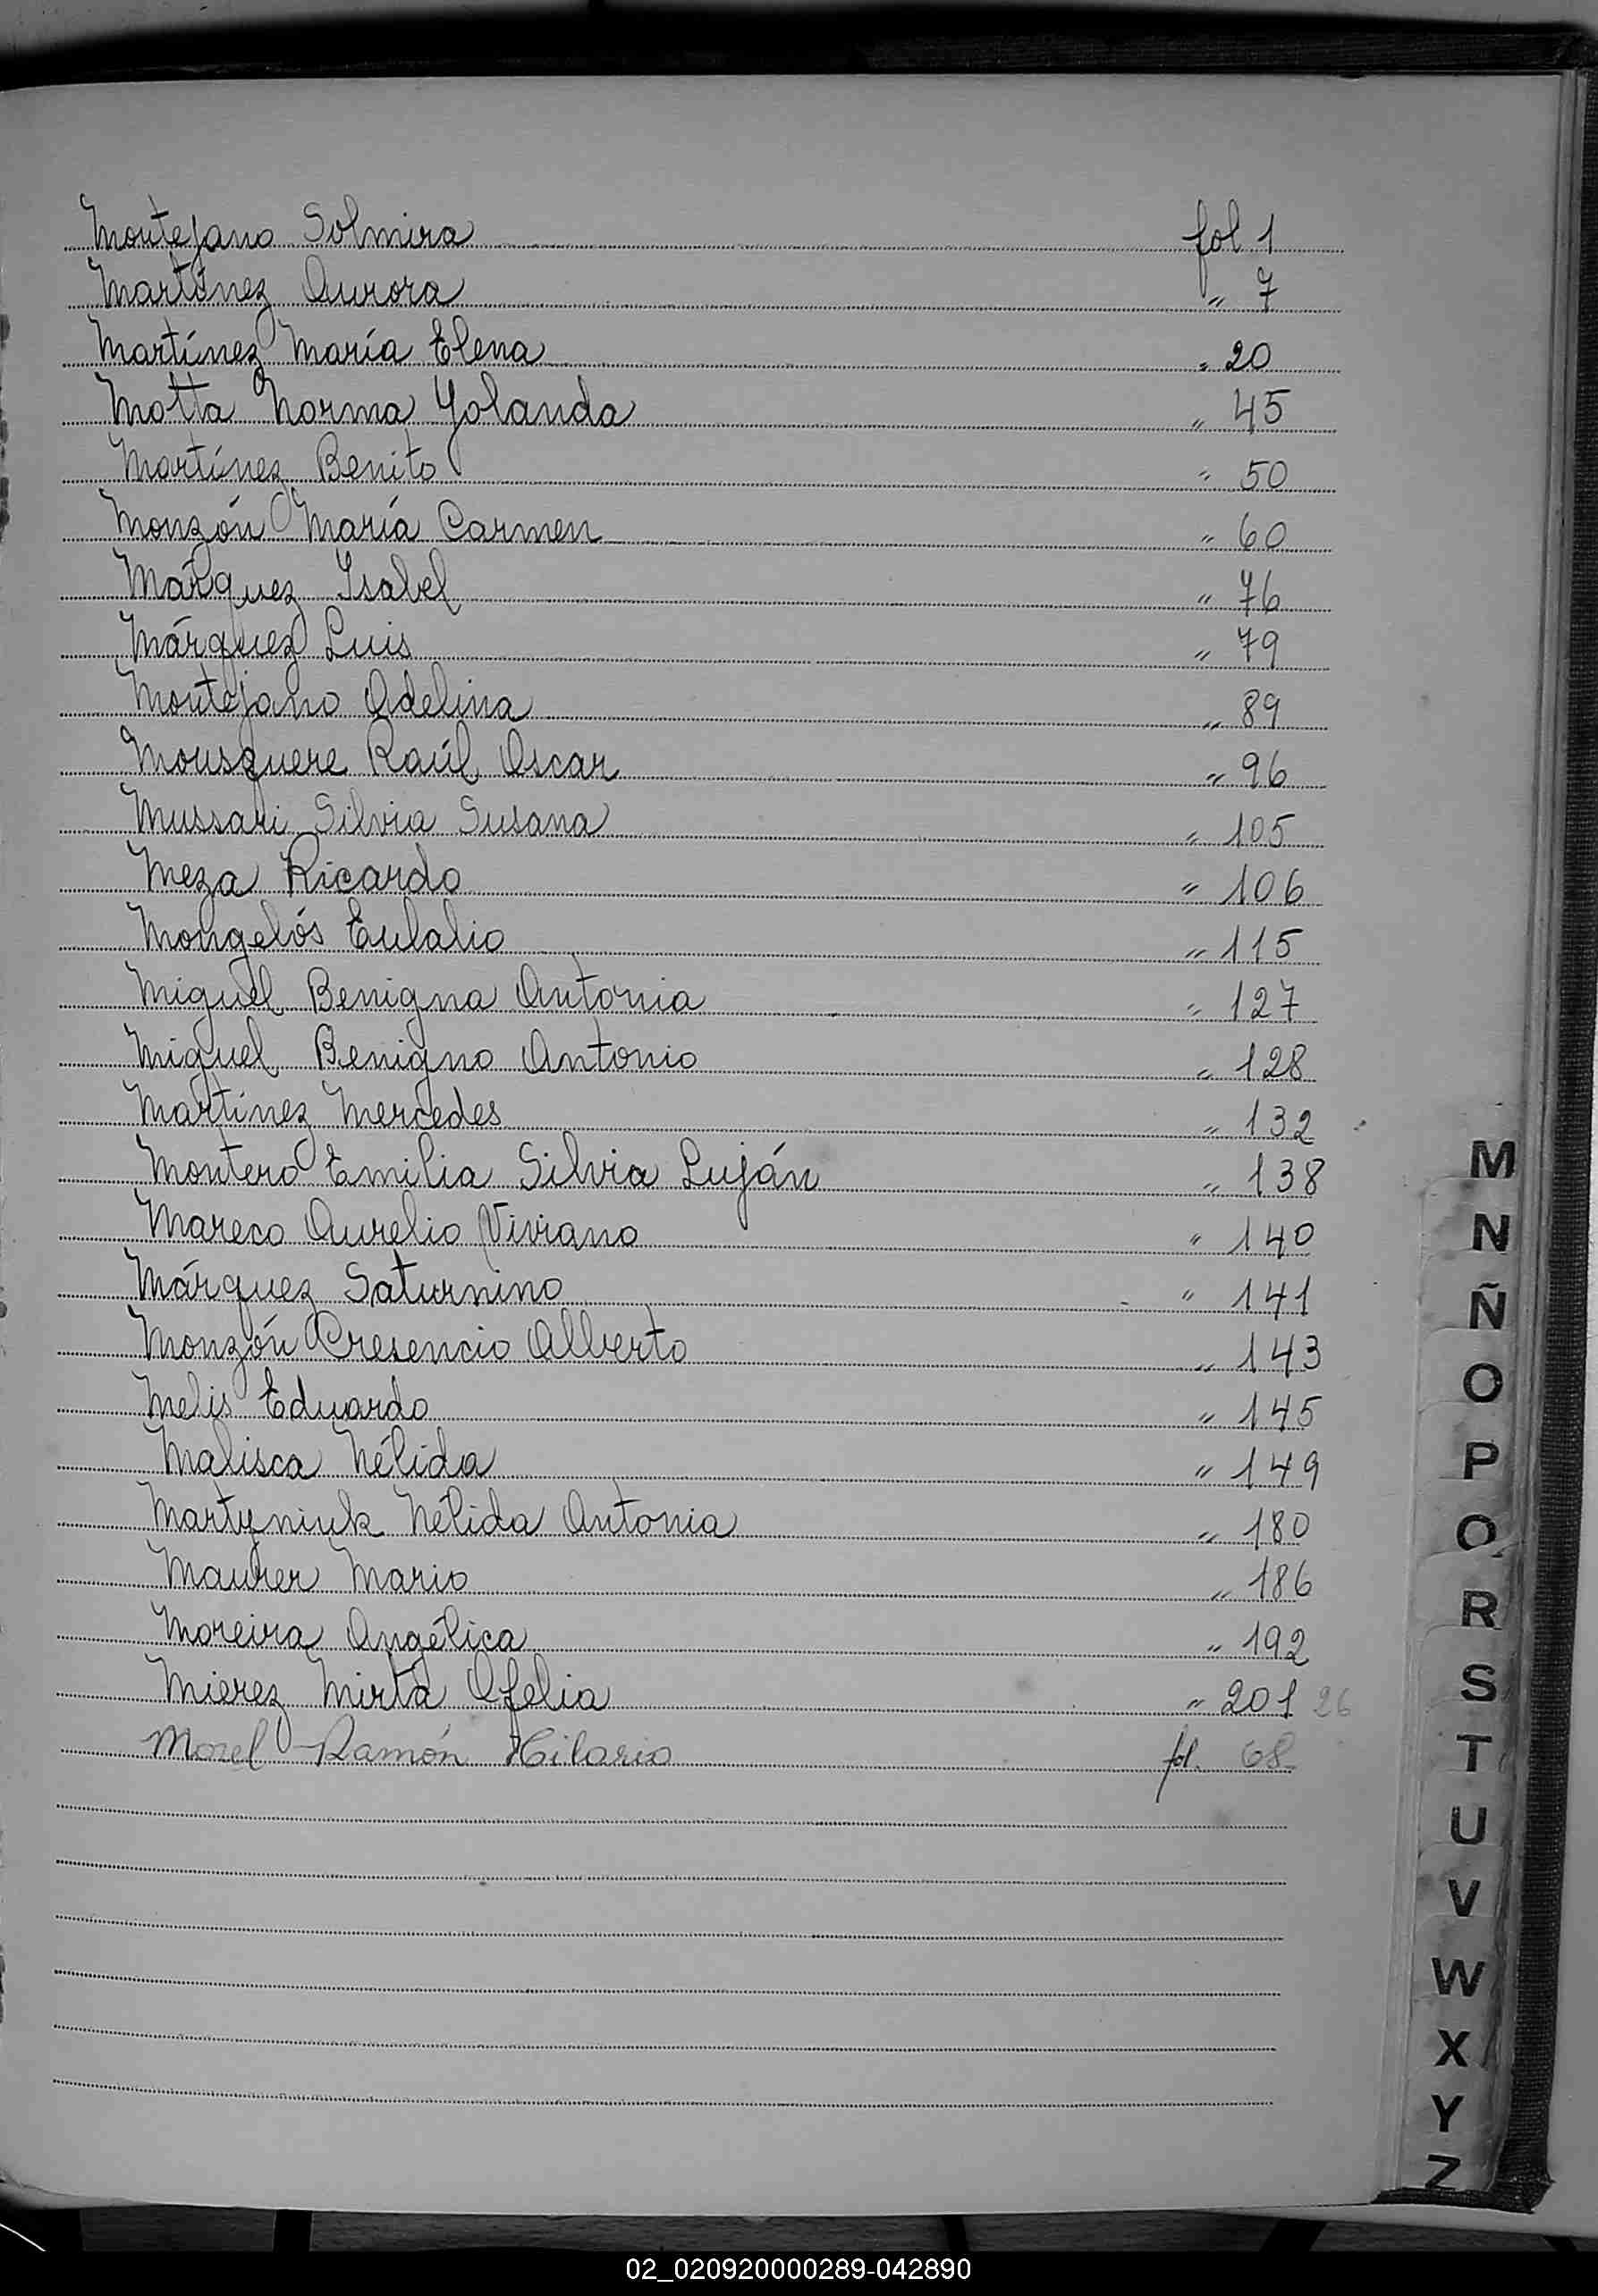 Montejano Solmira fol 1
Martínez Aurora " 7
Martínez María Elena " 20
Motta Norma Yolanda " 45
Martínez Benito " 50
Monzón María Carmen " 60
Márquez Isabel " 76
Márquez Luis " 79
Montejano Adelina " 89
Mousquere Raúl Oscar " 96
Mussari Silvia Susana " 105
Meza Ricardo " 106
Mongelós Eulalio " 115
Miguel Benigna Antonia " 127
Miguel Benigno Antonio " 128
Martínez Mercedes " 132
Montero Emilia Silvia Luján " 138
Mareco Aurelio Viviano " 140
Márquez Saturnino " 141
Monzón Cresencio Alberto " 143
Melis Eduardo " 145
Malisca Nélida " 149
Martyniuk Nélida Antonia " 180
Maurer Mario " 186
Moreira Angélica " 192
Mierez Mirta Ofelia " 201 26
Morel Ramón Hilario fol. 68
M
N
Ñ
O
P
Q
R
S
T
U
V
W
X
Y
Z
02_020920000289-042890